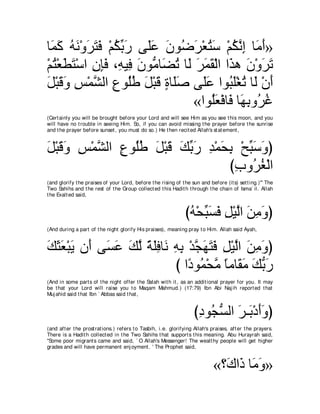 «أَمَا إِنَّكُمْ سَتُعْرَضُونَ عَلَى رَبِّكُمْ فَتَرَوْنَهُ كَمَا
تَرَوْنَ هَذَا الْقَمَرَ لَا تُضَامُّونَ فِيهِ، فَإِنِ اسْتَطَعْتُمْ
أَنْ لَا تُغْلَبُوا عَلَى صَلَاةٍ قَبْلَ طُلُوعِ الشَّمْسِ وَقَبْلَ
غُرُوبِهَا فَافْعَلُوا»
(Certainly you will be brought before your Lord and will see Him as you see this moon, and you
will have no trouble in seeing Him. So, if you can avoid missing the prayer before the sunrise
and the prayer before sunset, you must do so.) He then recited Allah's statement,
(وَسَبِّحْ بِحَمْدِ رَبِّكَ قَبْلَ طُلُوعِ الشَّمْسِ وَقَبْلَ
الْغُرُوبِ)
(and glorify the praises of your Lord, before the rising of the sun and before (its) setting.)'' The
Two Sahihs and the rest of the Group collected this Hadith through the chain of Isma`il. Allah
the Exalted said,
(وَمِنَ الَّيْلِ فَسَبِّحْهُ)
(And during a part of the night glorify His praises), meaning pray to Him. Allah said Ayah,
(وَمِنَ الَّيْلِ فَتَهَجَّدْ بِهِ نَافِلَةً لَّكَ عَسَى أَن يَبْعَثَكَ
رَبُّكَ مَقَاماً مَّحْمُودًا )
(And in some parts of the night offer the Salah with it, as an additional prayer for you. It may
be that your Lord will raise you to Maqam Mahmud.) (17:79) Ibn Abi Najih reported that
Mujahid said that Ibn `Abbas said that,
(وَأَدْبَـرَ السُّجُودِ)
(and after the prostrations.) refers to Tasbih, i.e. glorifying Allah's praises, after the prayers.
There is a Hadith collected in the Two Sahihs that supports this meaning. Abu Hurayrah said,
"Some poor migrants came and said, `O Allah's Messenger! The wealthy people will get higher
grades and will have permanent enjoyment.' The Prophet said,
«وَمَا ذَاكَ؟»